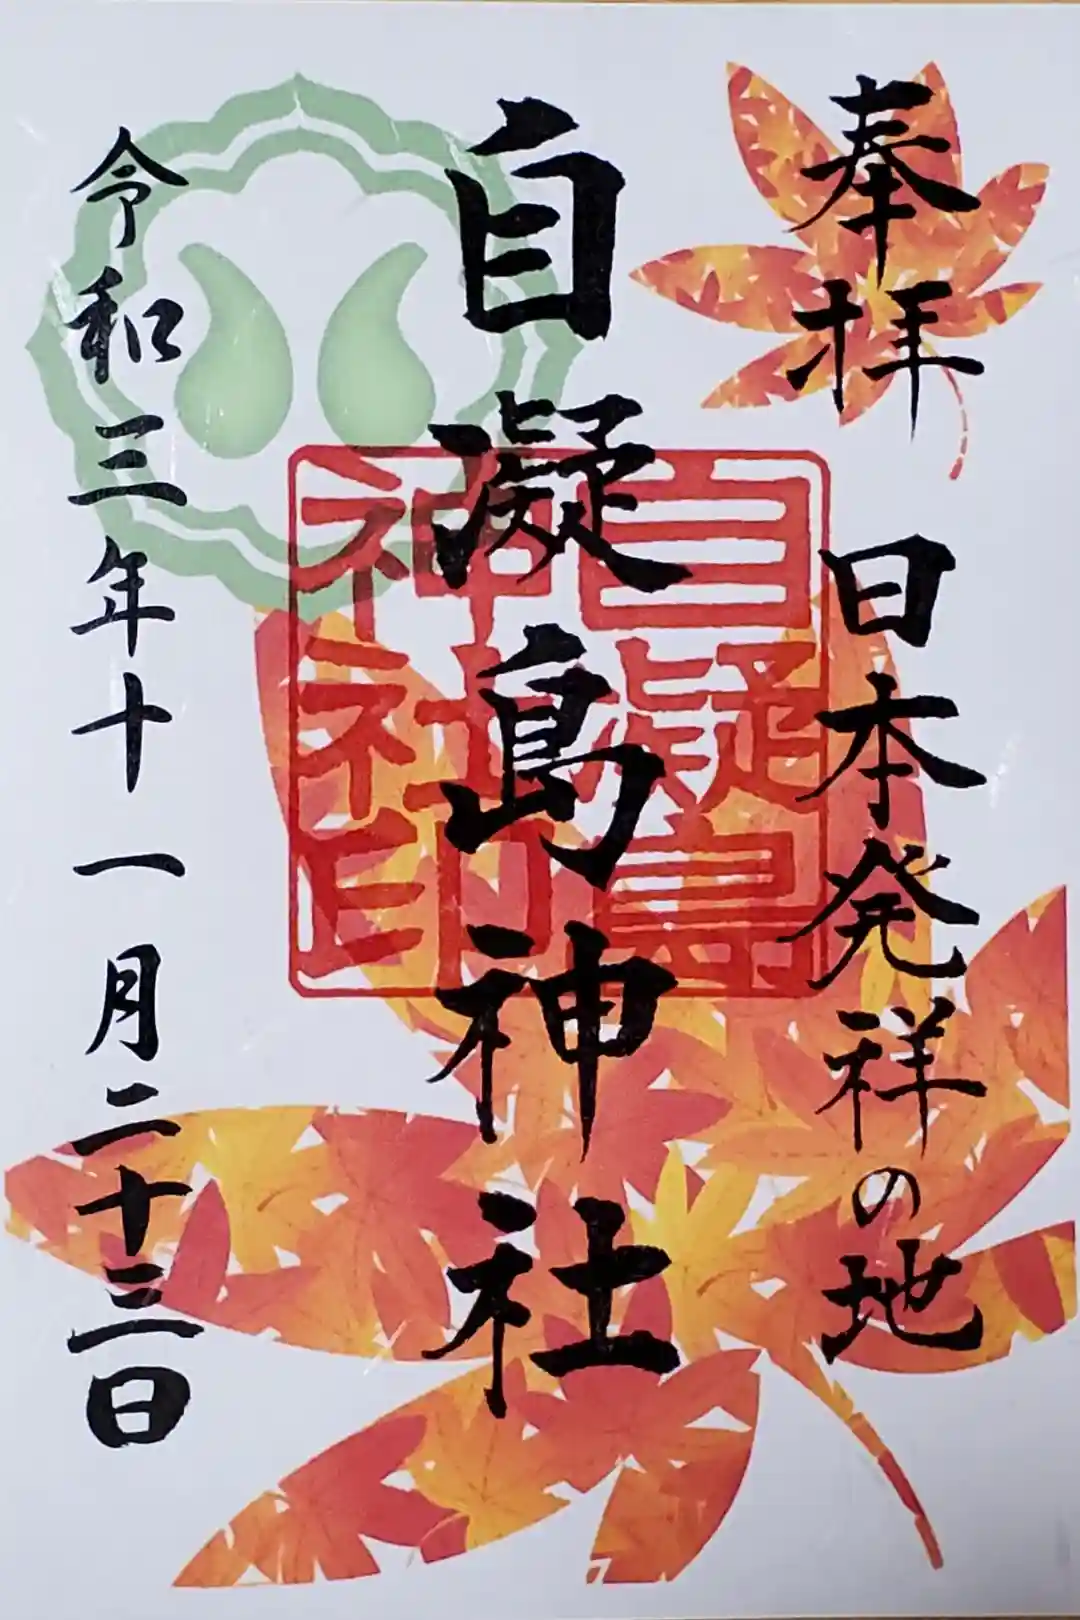 奉拝
日本発祥の地
自凝島神社
自凝島
神社印
令和三年十一月二十三日